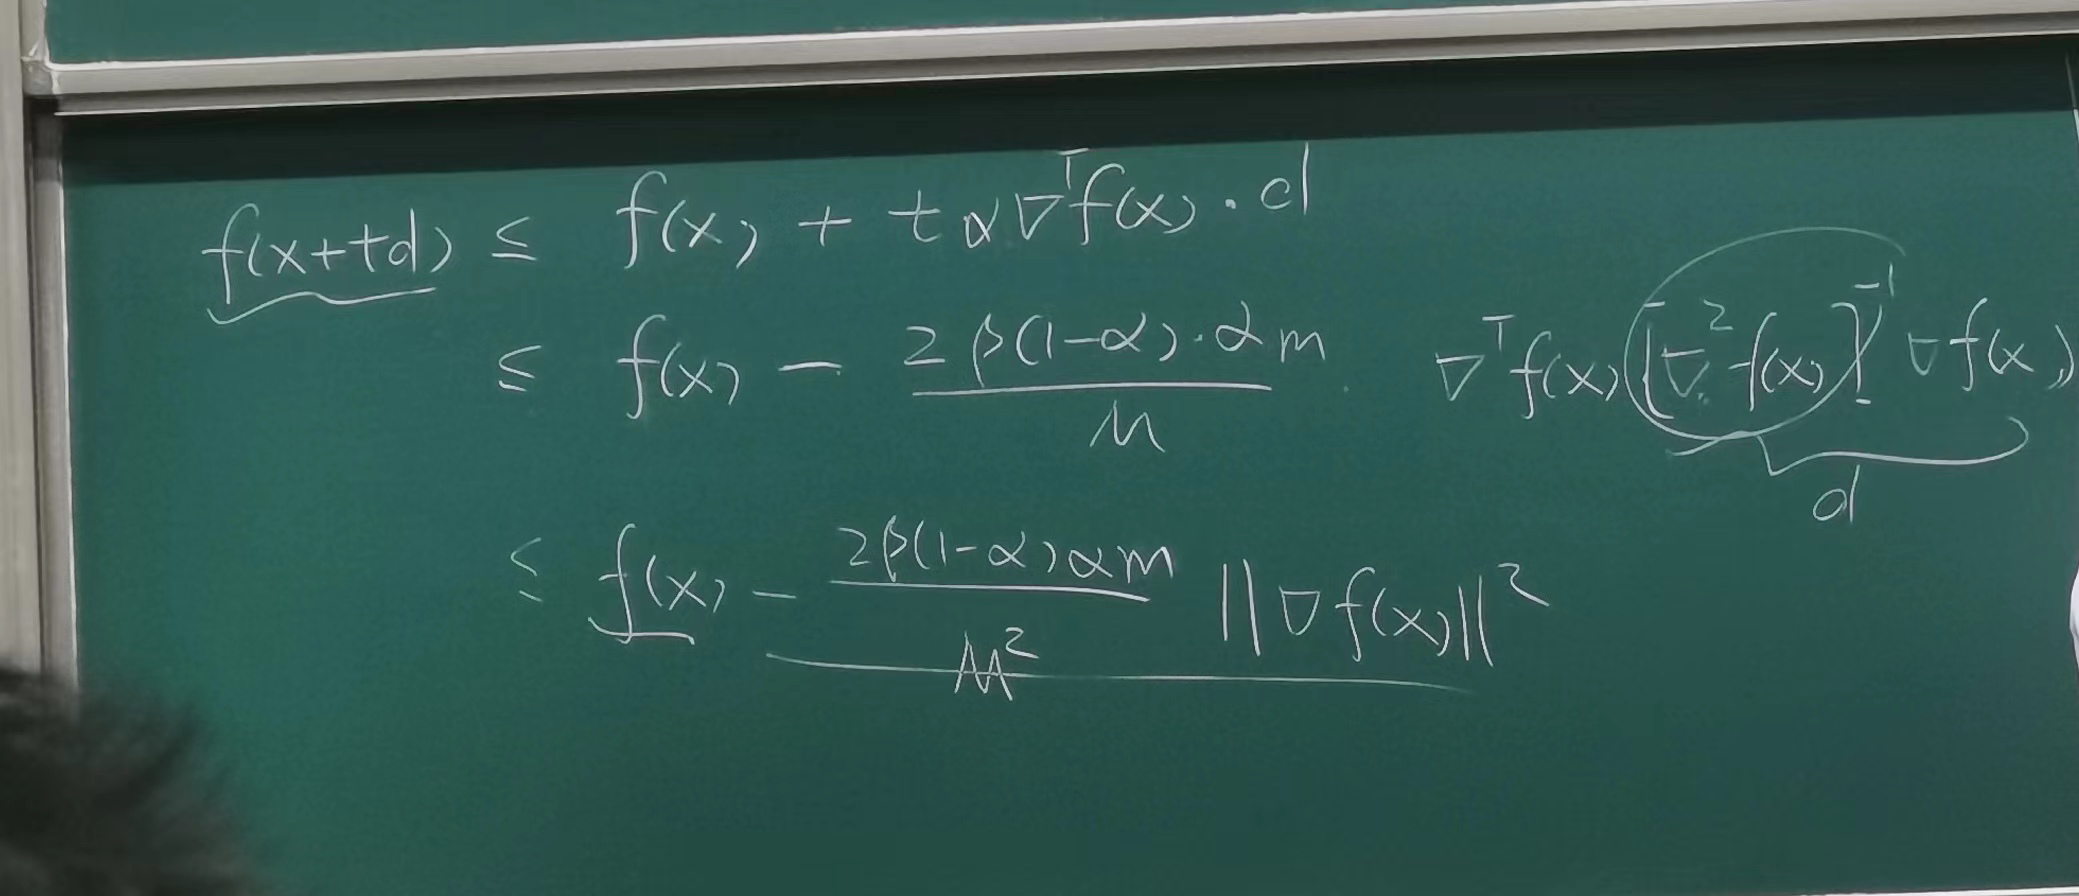 f(x+td) ≤ f(x) + tα∇ᵀf(x)·d
≤ f(x) − 2β(1−α)·αm / M ∇ᵀf(x) [∇²f(x)]⁻¹ ∇f(x)
d
≤ f(x) − 2β(1−α)αm / M² ‖∇f(x)‖²